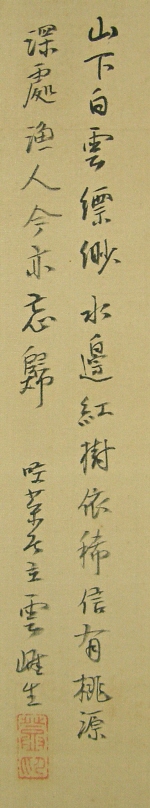 山下白雲縹緲水邊紅樹依稀信有桃源
深處漁人今亦忘歸 雲嶂生